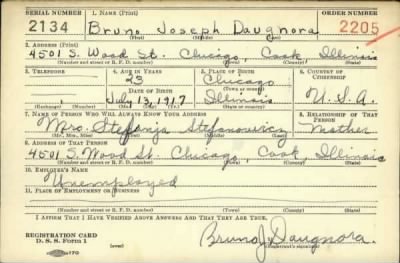 SERIAL NUMBER 1. NAME (Print) ORDER NUMBER
2134 Bruno Joseph Daugnora 2205
(First) (Middle) (Last)
2. ADDRESS (Print)
4501 S. Wood St. Chicago, Cook, Illinois
(Number and street or R. F. D. number) (Town) (County) (State)
3. TELEPHONE 4. AGE IN YEARS 5. PLACE OF BIRTH 6. COUNTRY OF CITIZENSHIP
23 Chicago
(Town or county)
DATE OF BIRTH
July 13, 1917 Illinois U.S.A.
(Exchange) (Number) (Mo.) (Day) (Yr.) (State or country)
7. NAME OF PERSON WHO WILL ALWAYS KNOW YOUR ADDRESS 8. RELATIONSHIP OF THAT PERSON
Mrs. Stefanja Stefanowicz Mother
(Mr., Mrs., Miss) (First) (Middle) (Last)
9. ADDRESS OF THAT PERSON
4501 S. Wood St. Chicago, Cook, Illinois
(Number and street or R. F. D. number) (Town) (County) (State)
10. EMPLOYER'S NAME
Unemployed
11. PLACE OF EMPLOYMENT OR BUSINESS
(Number and street or R. F. D. number) (Town) (County) (State)
I AFFIRM THAT I HAVE VERIFIED ABOVE ANSWERS AND THAT THEY ARE TRUE.
REGISTRATION CARD
D. S. S. Form 1 Bruno J Daugnora.
(Registrant's signature)